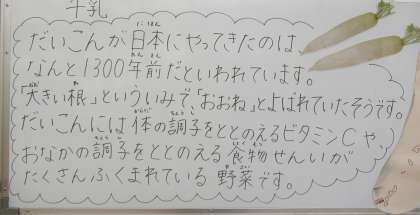 牛乳
だいこんが日本にやってきたのは、
なんと1300年前だといわれています。
「大きい根」といういみで、「おおね」とよばれていたそうです。
だいこんには体の調子をととのえるビタミンCや、
おなかの調子をととのえる食物せんいが
たくさんふくまれている野菜です。